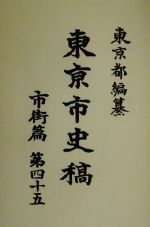 東亰都編纂
東亰市史稿
市街篇 第四十五